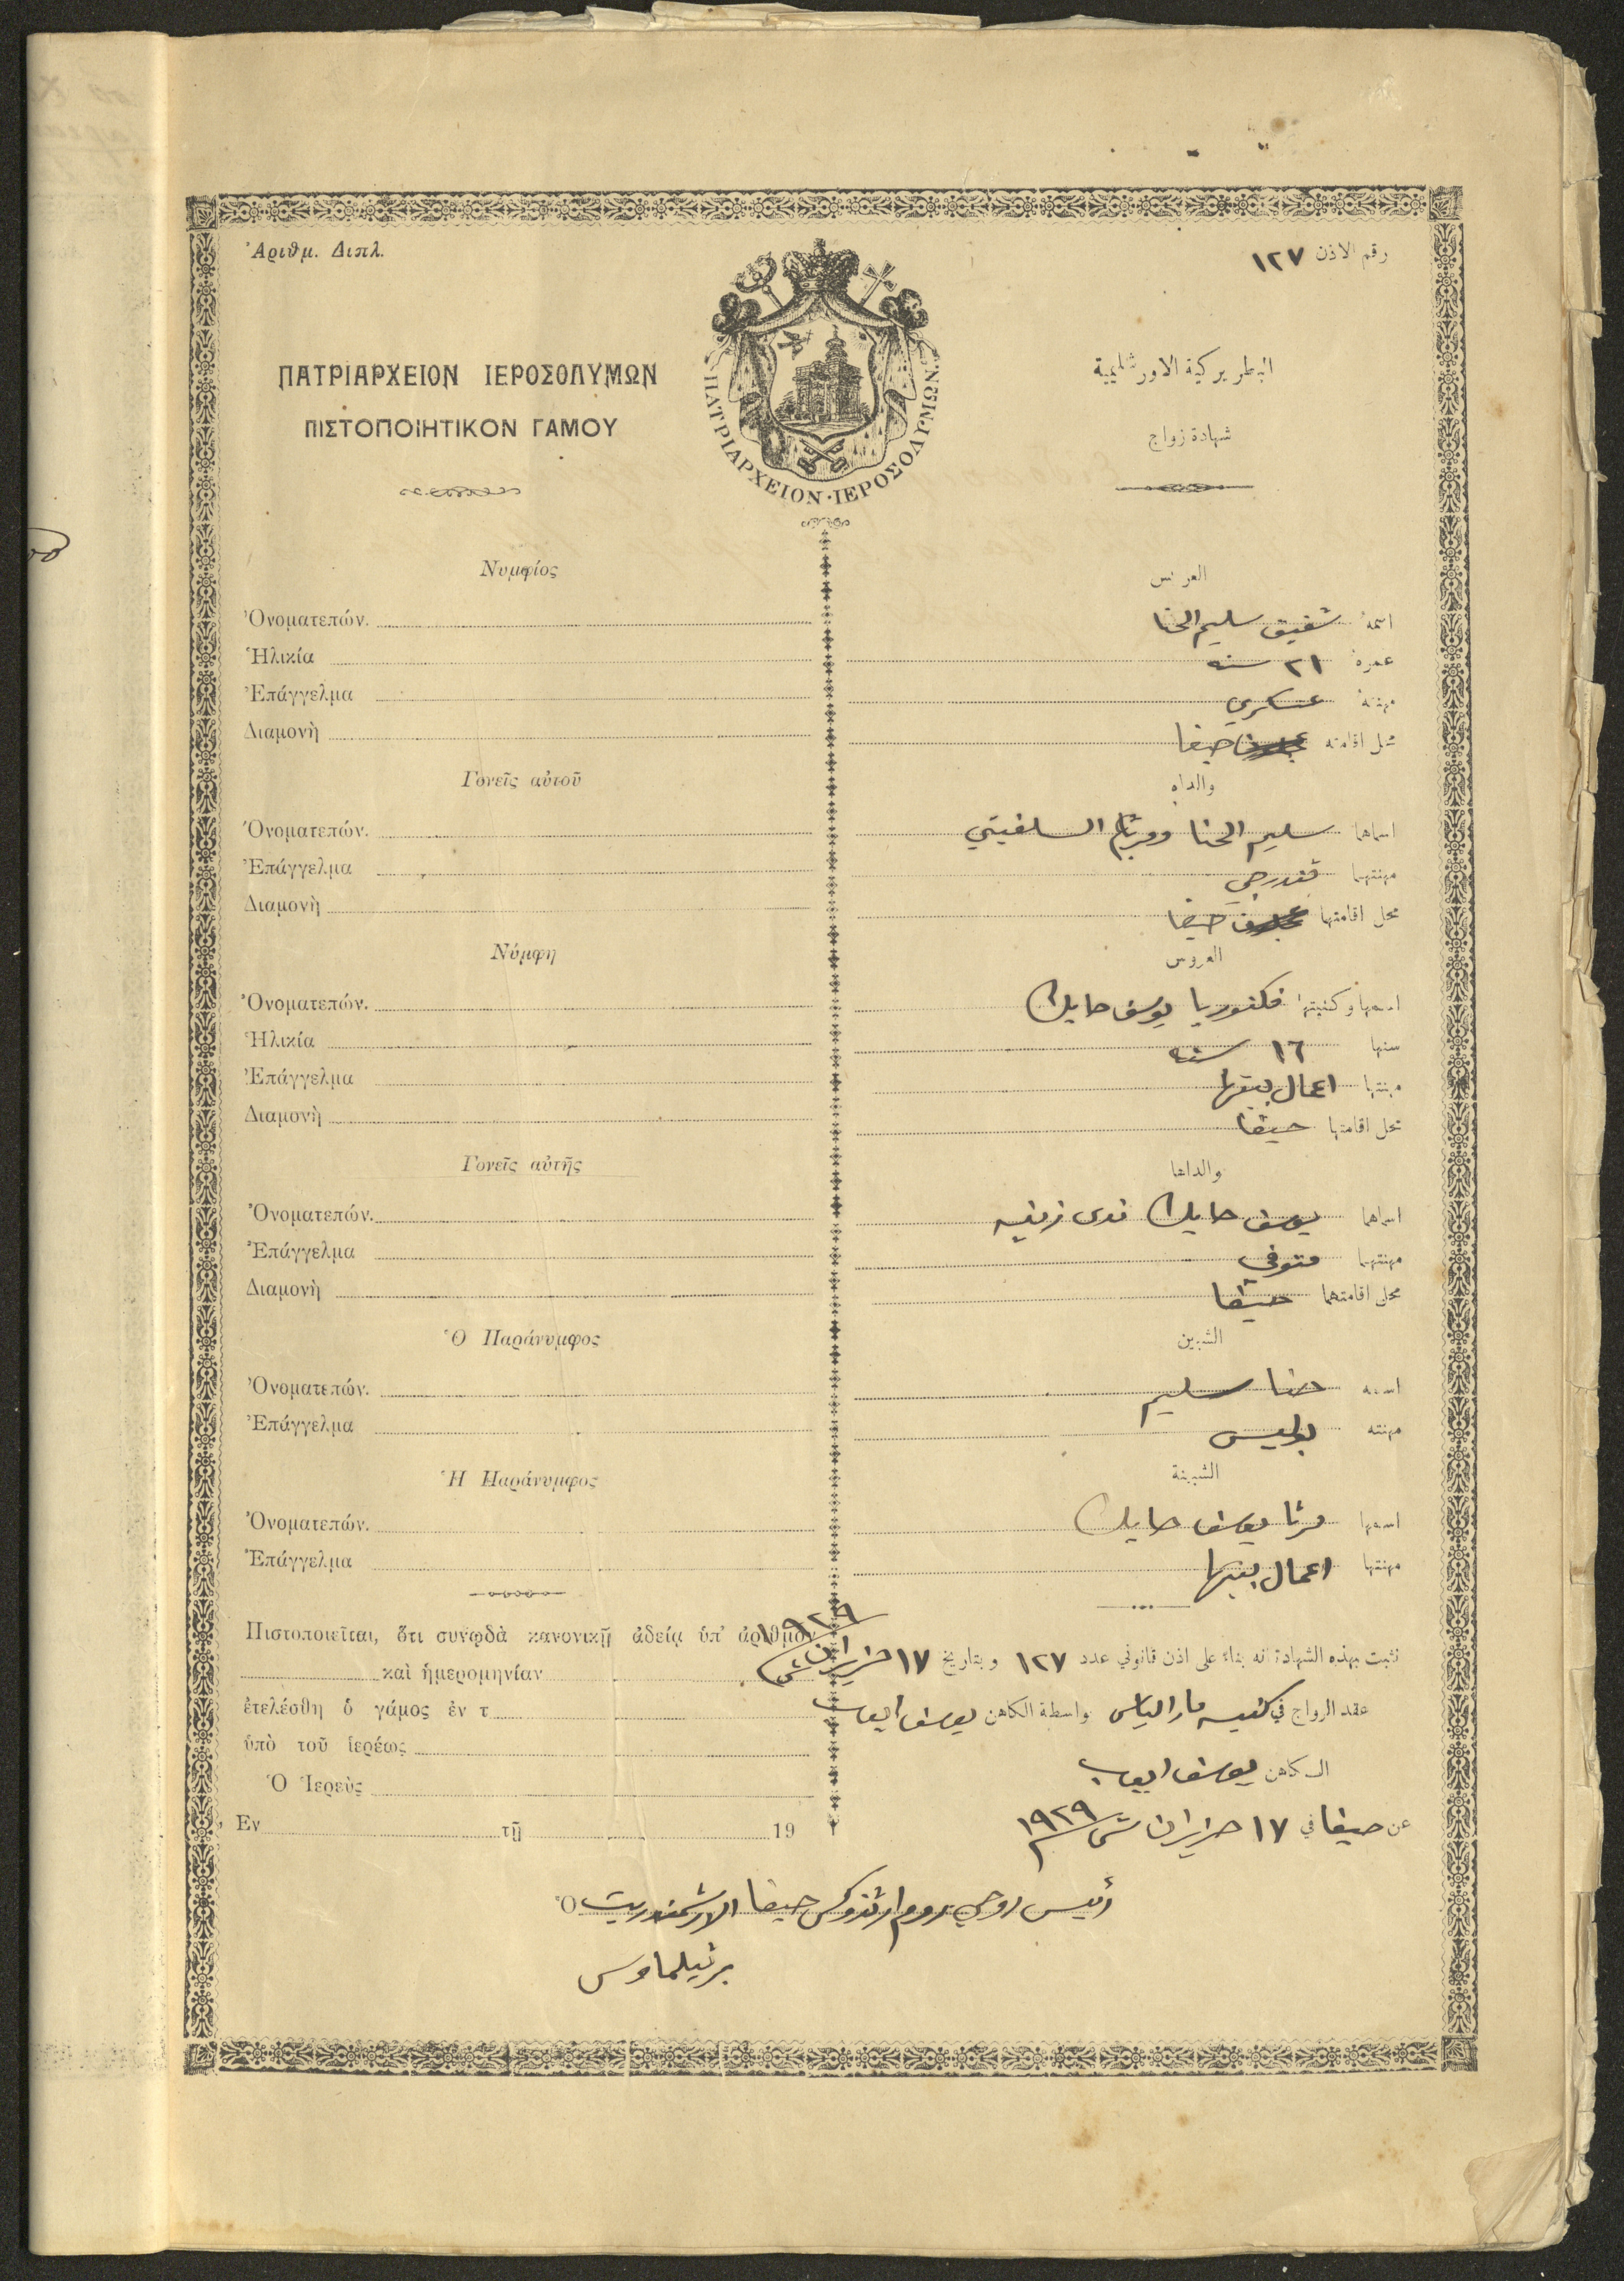 Ἀριθμ. Διπλ.
رقم الاذن ١٢٧
ΠΑΤΡΙΑΡΧΕΙΟΝ ΙΕΡΟΣΟΛΥΜΩΝ
ΠΙΣΤΟΠΟΙΗΤΙΚΟΝ ΓΑΜΟΥ
ΠΑΤΡΙΑΡΧΕΙΟΝ·ΙΕΡΟΣΟΛΥΜΩΝ.
البطريركية الاورشليمية
شهادة زواج
Νυμφίος
العريس
Ὀνοματεπών.
اسمهُ شفيق سليم الحنا
Ἡλικία
عمرهُ ٢١ سنه
Ἐπάγγελμα
مهنتهُ عسكري
Διαμονὴ
محل اقامته حيفا
Γονεῖς αὐτοῦ
والداه
Ὀνοματεπών.
اسماهما سليم الحنا السلفيتي
Ἐπάγγελμα
مهنتهما قندرجي
Διαμονὴ
محل اقامتهما حيفا
Νύμφη
العروس
Ὀνοματεπών.
اسمها وكنيتها فكتوريا يوسف حايك
Ἡλικία
سنها ١٦ سنه
Ἐπάγγελμα
مهنتها اعمال بيتها
Διαμονὴ
محل اقامتها حيفا
Γονεῖς αὐτῆς
والداها
Ὀνοματεπών.
اسماهما يوسف حايك ندى
Ἐπάγγελμα
مهنتهما متوفي
Διαμονὴ
محل اقامتهما حيفا
Ὁ Παράνυμφος
الشبين
Ὀνοματεπών.
اسمه حنا سليم
Ἐπάγγελμα
مهنته بوليس
Ἡ Παράνυμφος
الشبينة
Ὀνοματεπών.
اسمها مرتا يوسف حايك
Ἐπάγγελμα
مهنتها اعمال بيتها
Πιστοποιεῖται, ὅτι συνῳδὰ κανονικῇ ἀδείᾳ ὑπ' ἀριθμὸν
καὶ ἡμερομηνίαν
ἐτελέσθη ὁ γάμος ἐν τ
ὑπὸ τοῦ ἱερέως
Ὁ Ἱερεὺς
Ἐν τῇ 19
نثبت بهذه الشهادة انه بناء على اذن قانوني عدد ١٢٧ وبتاريخ ١٧ حزيران ش ١٩٢٩
عقد الزواج في كنيسه مار الياس بواسطة الكاهن يوسف ايوب
الكاهن يوسف ايوب
عن حيفا في ١٧ حزيران ش ١٩٢٩
رئيس روحي روم ارثذوكس حيفا الارشمندريت Ὁ
برثيلماوس